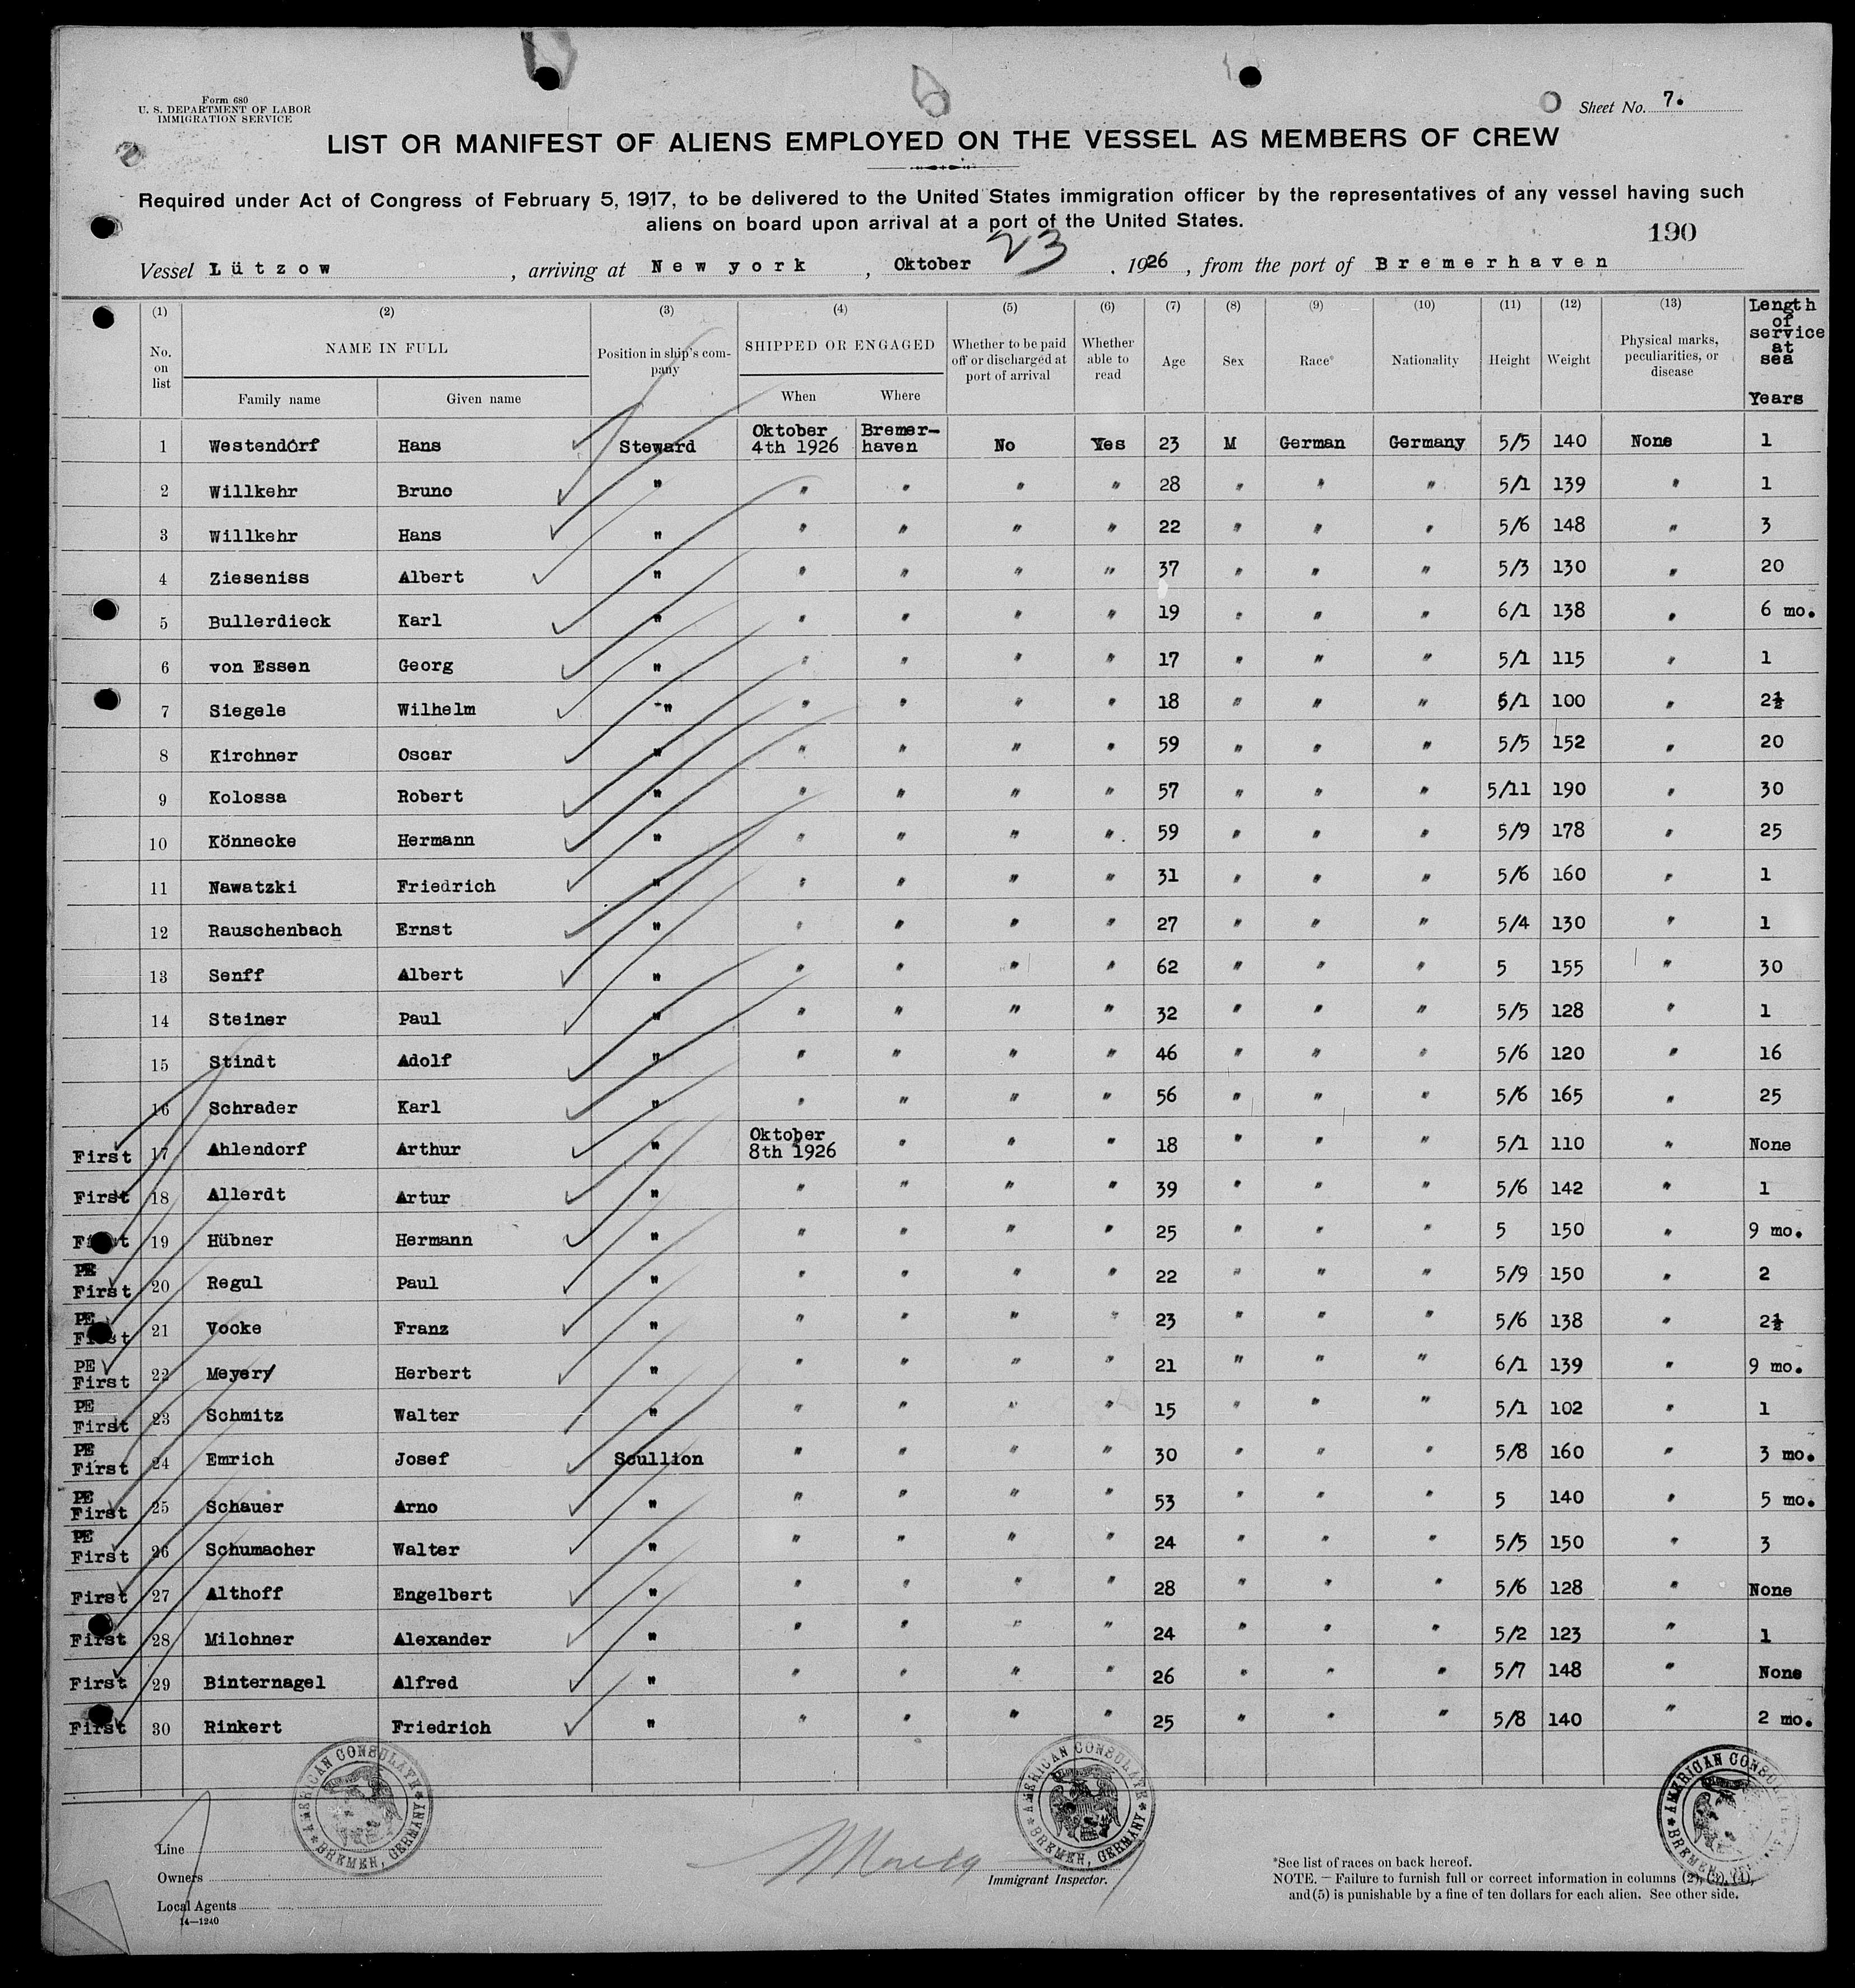 Form 680
U. S. DEPARTMENT OF LABOR
IMMIGRATION SERVICE
Sheet No. 7.
LIST OR MANIFEST OF ALIENS EMPLOYED ON THE VESSEL AS MEMBERS OF CREW
Required under Act of Congress of February 5, 1917, to be delivered to the United States immigration officer by the representatives of any vessel having such
aliens on board upon arrival at a port of the United States.
190
Vessel Lützow , arriving at New york , Oktober 23 . 1926 , from the port of Bremerhaven
(1) (2) (3) (4) (5) (6) (7) (8) (9) (10) (11) (12) (13) Length of service at sea Years
No. on list NAME IN FULL Position in ship's company SHIPPED OR ENGAGED Whether to be paid off or discharged at port of arrival Whether able to read Age Sex Race* Nationality Height Weight Physical marks, peculiarities, or disease
Family name Given name When Where
1 Westendorf Hans Steward Oktober 4th 1926 Bremer-haven No Yes 23 M German Germany 5/5 140 None 1
2 Willkehr Bruno " " " " " 28 " " " 5/1 139 " 1
3 Willkehr Hans " " " " " 22 " " " 5/6 148 " 3
4 Zieseniss Albert " " " " " 37 " " " 5/3 130 " 20
5 Bullerdieck Karl " " " " " 19 " " " 6/1 138 " 6 mo.
6 von Essen Georg " " " " " 17 " " " 5/1 115 " 1
7 Siegele Wilhelm " " " " " 18 " " " 5/1 100 " 2½
8 Kirchner Oscar " " " " " 59 " " " 5/5 152 " 20
9 Kolossa Robert " " " " " 57 " " " 5/11 190 " 30
10 Könnecke Hermann " " " " " 59 " " " 5/9 178 " 25
11 Nawatzki Friedrich " " " " " 31 " " " 5/6 160 " 1
12 Rauschenbach Ernst " " " " " 27 " " " 5/4 130 " 1
13 Senff Albert " " " " " 62 " " " 5 155 " 30
14 Steiner Paul " " " " " 32 " " " 5/5 128 " 1
15 Stindt Adolf " " " " " 46 " " " 5/6 120 " 16
16 Schrader Karl " " " " " 56 " " " 5/6 165 " 25
First 17 Ahlendorf Arthur " Oktober 8th 1926 " " " 18 " " " 5/1 110 " None
First 18 Allerdt Artur " " " " " 39 " " " 5/6 142 " 1
First 19 Hübner Hermann " " " " " 25 " " " 5 150 " 9 mo.
PE First 20 Regul Paul " " " " " 22 " " " 5/9 150 " 2
PE First 21 Vocke Franz " " " " " 23 " " " 5/6 138 " 2½
PE First 22 Meyer Herbert " " " " " 21 " " " 6/1 139 " 9 mo.
PE First 23 Schmitz Walter " " " " " 15 " " " 5/1 102 " 1
PE First 24 Emrich Josef Scullion " " " " 30 " " " 5/8 160 " 3 mo.
PE First 25 Schauer Arno " " " " " 53 " " " 5 140 " 5 mo.
PE First 26 Schumacher Walter " " " " " 24 " " " 5/5 150 " 3
First 27 Althoff Engelbert " " " " " 28 " " " 5/6 128 " None
First 28 Milchner Alexander " " " " " 24 " " " 5/2 123 " 1
First 29 Binternagel Alfred " " " " " 26 " " " 5/7 148 " None
First 30 Rinkert Friedrich " " " " " 25 " " " 5/8 140 " 2 mo.
AMERICAN CONSULATE BREMEN, GERMANY
AMERICAN CONSULATE BREMEN, GERMANY
AMERICAN CONSU BREMEN
Line
Owners
Immigrant Inspector.
Local Agents
14—1240
*See list of races on back hereof.
NOTE. — Failure to furnish full or correct information in columns (2), (3), (4),
and (5) is punishable by a fine of ten dollars for each alien. See other side.